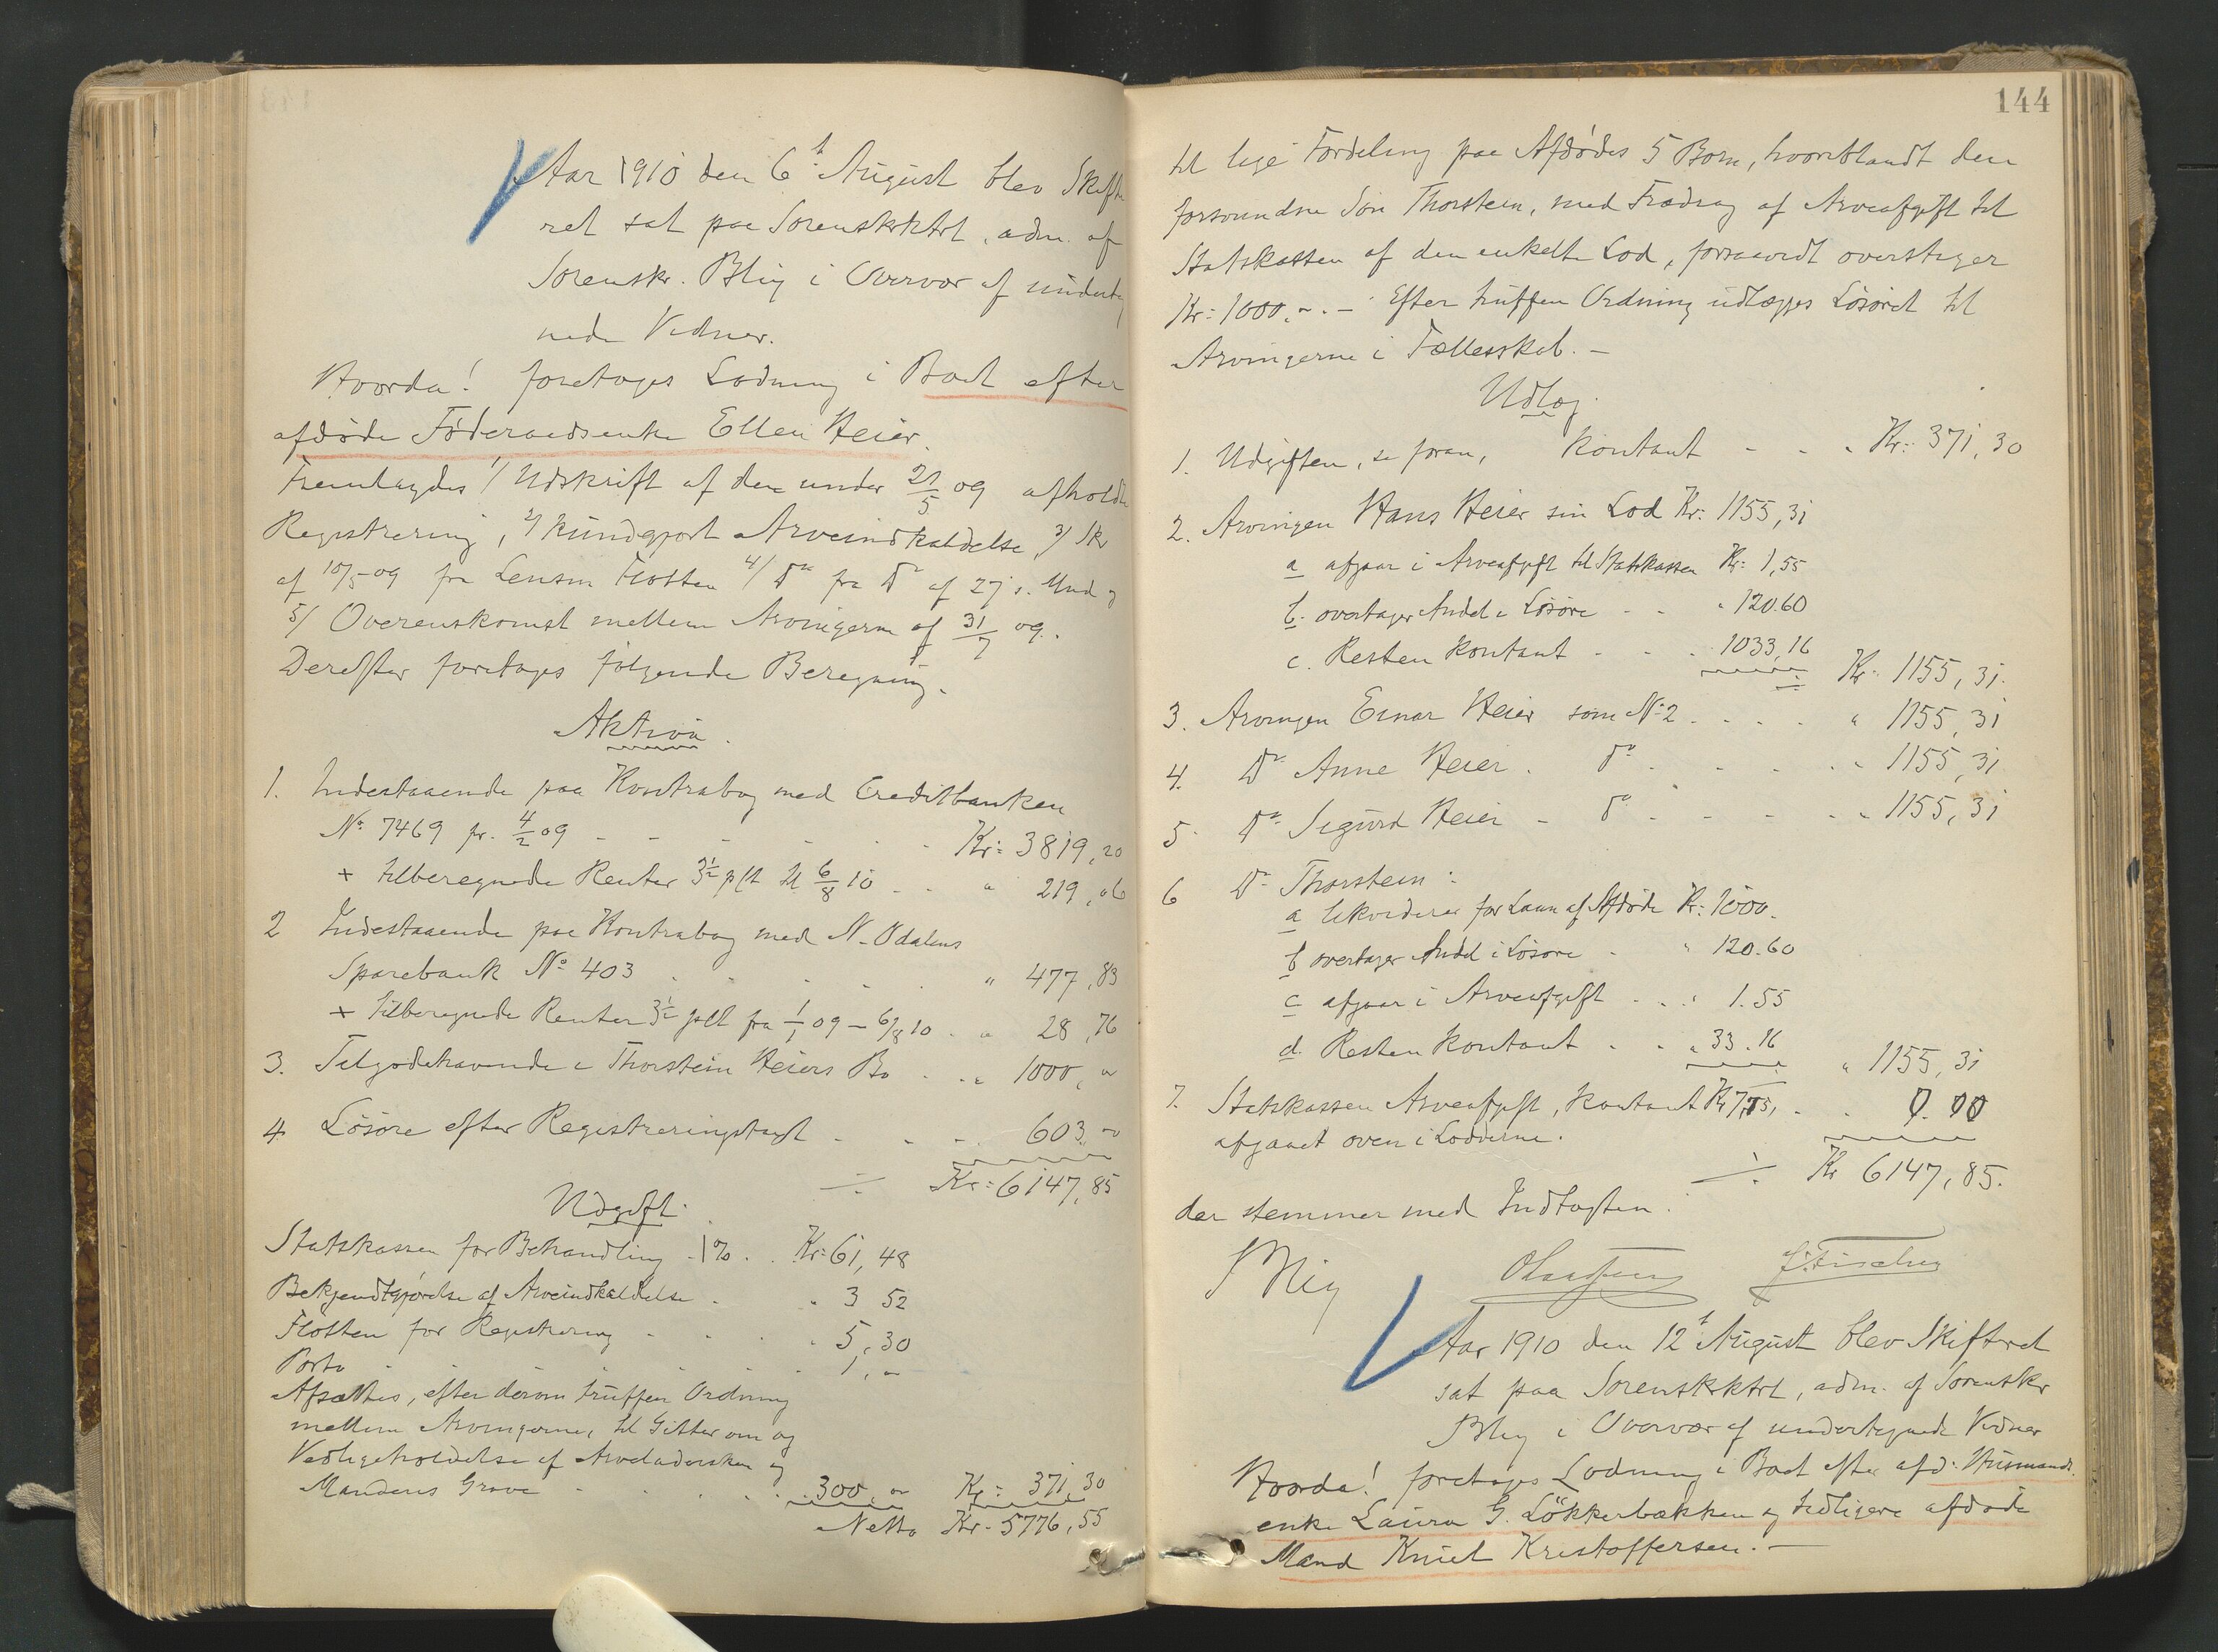 Aar 1910 den 6t August blev Skifte
ret sat paa Sorenskrktrt, adm. af
Sorenskr. Blig i Overvær af underteg
nede Vidner.
Hvorda! foretages Lodning i Boet efter
afdøde Føderaadsenke Ellen Heier.
Fremlagdes 1/ Udskrift af den under 21/5 09 afholdte
Registrering, 2/ kundgjort Arveindkaldelse, 3/ Skr
af 10/5 09 fra Lensm Flotten 4/ Do fra Do af 27 s. Mnd og
5/ Overenskomst mellem Arvingerne af 31/7 09.
Derefter foretages følgende Beregning.
Aktiva.
1. Indestaaende paa Kontrabog med Creditbanken
No 7469 pr. 4/2 09 - - - - - Kr: 3819,20
+ tilberegnede Renter 3½ pCt til 6/8 10 - - " 219,06
2 Indestaaende paa Kontrabog med N. Odalens
Sparebank No 403 . . . . . " 477,83
+ tilberegnede Renter 3½ pCt fra 1/1 09 - 6/8 10 . " 28,76
3. Tilgodehavende i Thorstein Heiers Bo . . " 1000,"
4 Løsøre efter Registreringstaxt - - - 603 "
Kr: 6147,85
Udgift.
Statskassen for Behandling 1% . . Kr: 61,48
Bekjendtgjørelse af Arveindkaldelse . " 3 52
Flotten for Registrering . . . . 5,30
Porto . . . . . . 1,"
Afsættes, efter derom truffen Ordning
mellem Arvingerne, til Gitter om og
Vedligeholdelse af Arveladersken og
Mandens Grave . . . . . 300," Kr: 371,30
Netto Kr. 5776,55
144
til lige Fordeling paa Afdødes 5 Børn, hvoriblandt den
forsvundne Søn Thorstein, med Fradrag af Arveafgift til
Statskassen af den enkelte Lod, forsaavidt overstiger
Kr: 1000.-.- Efter truffen Ordning udlægges Løsøret til
Arvingerne i Fællesskab. -
Udlæg.
1. Udgiften, se foran, Kontant - - " Kr: 371,30
2. Arvingen Hans Heier sin Lod Kr: 1155,31
a afgaar i Arveafgift til Statskassen Kr: 1,55
b. overtager Andel i Løsøre - - " 120.60
c. Resten kontant - - . 1033,16 Kr. 1155,31.
3. Arvingen Einar Heier som No 2 . . . . " 1155,31
4. Do Anne Heier . do . . . . " 1155,31
5. Do Sigurd Heier - do . . . . " 1155,31
6 Do Thorstein:
a likviderer for Laan af Afdøde Kr: 1000.
b overtager Andel i Løsøre . " 120.60
c afgaar i Arveafgift . . . 1.55
d. Resten kontant . . " 33.16 " 1155,31
7. Statskassen Arveafgift, kontant Kr 7,75, . . 0.00
afgaaet oven i Lodderne.
Kr 6147,85.
der stemmer med Indtægten.
Aar 1910 den 12t August blev Skifteret
sat paa Sorenskrktrt, adm. af Sorenskr
Blig i Overvær af undertegnede Vidner
Hvorda! foretages Lodning i Boet efter afd. Husmands
enke Laura G. Løkkerbækken og tidligere afdøde
Mand Knut Kristoffersen. -